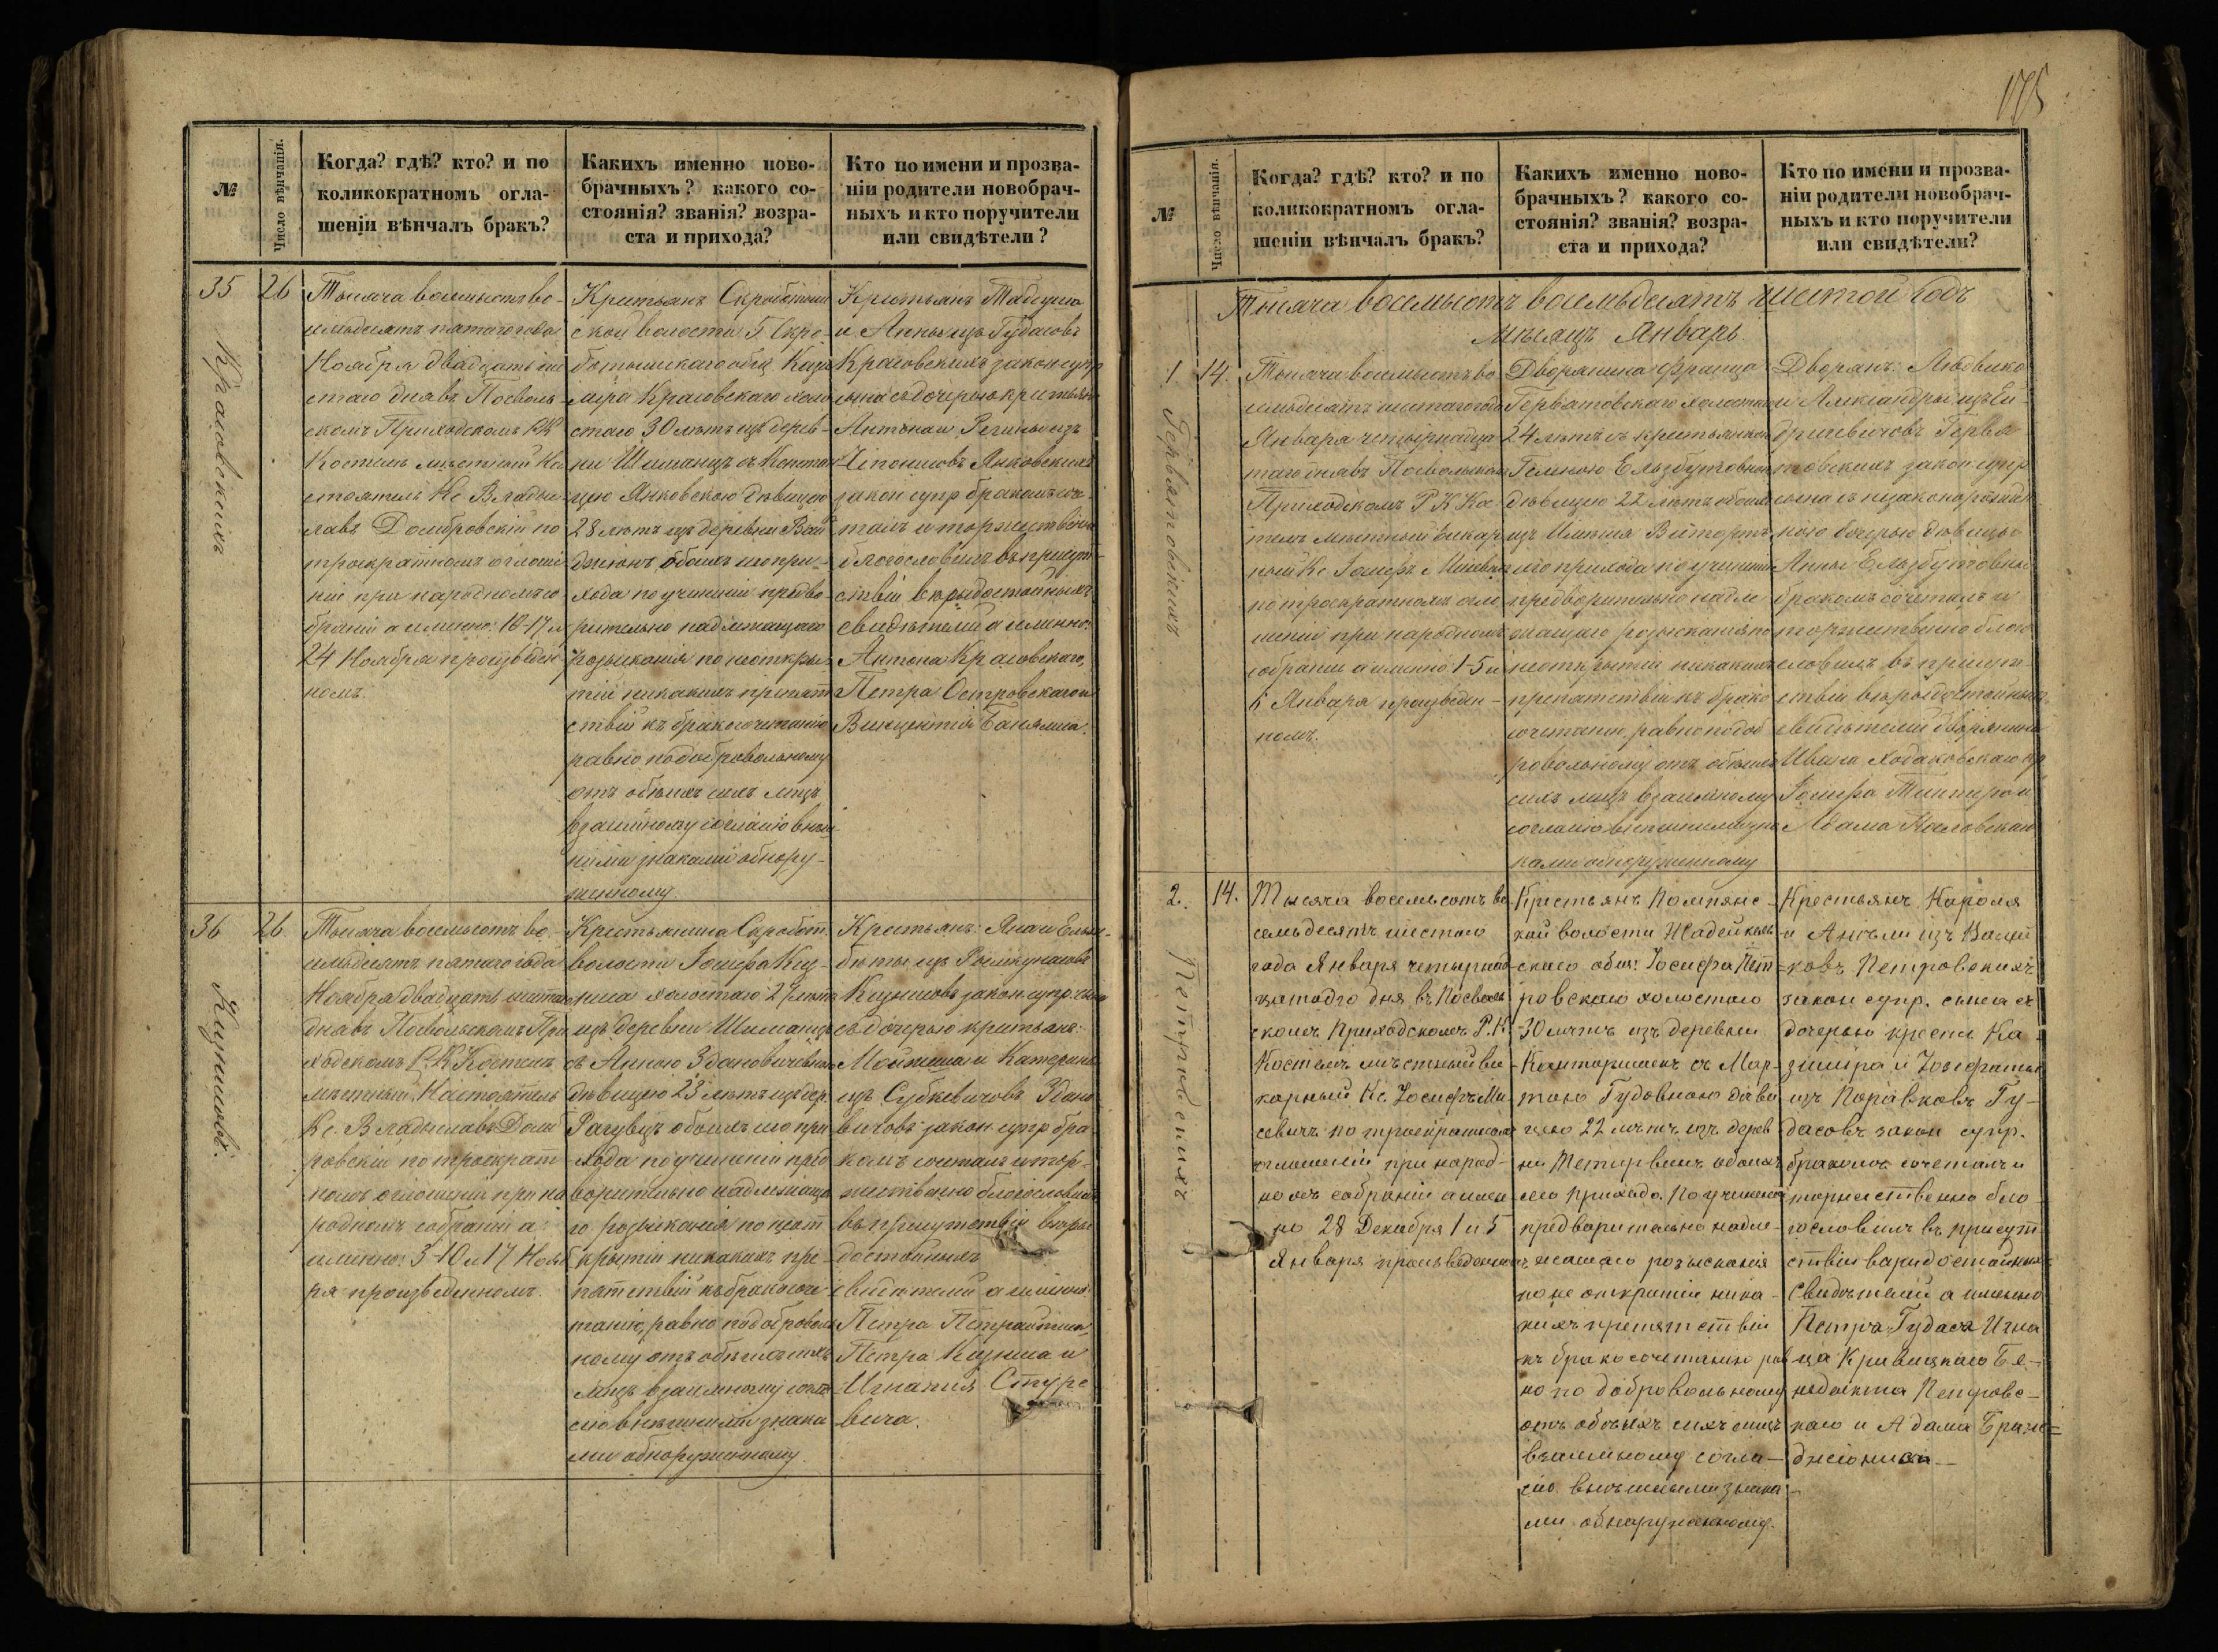 №
Число вѣнчанія.
Когда? гдѣ? кто? и по
коликократномъ огла-
шеніи вѣнчалъ бракъ?
Какихъ именно ново-
брачныхъ? какого со-
стоянія? званія? возра-
ста и прихода?
Кто по имени и прозва-
ніи родители новобрач-
ныхъ и кто поручители
или свидѣтели?
35
26
Красовскихъ
Тысяча восемьсотъ во-
семьдесятъ пятаго года
Ноября двадцать ше
стаго дня въ Посволь-
скомъ Приходскомъ Р.К.
Костелѣ мѣстный На
стоятель Кс Владыс
лавъ Домбровскій по
троекратномъ оглаше
ніи при народномъ со
браніи а именно: 10-17 и
24 Ноября произведен
номъ.
Крестьянъ Скробótиш
ской волости
мира Красовскаго холо
стаго 30 лѣтъ изъ дерев-
ни Шиманцъ съ Констан
цею Янковскою дѣвицею
28 лѣтъ изъ деревни
обоихъ сего при-
хода по учиненіи предва-
рительно надлежащаго
розысканія по неоткры-
тіи никакихъ препят
ствій къ бракосочетанію
равно по добровольному
отъ обѣихъ сихъ лицъ
взаимному согласію внѣш
ними знаками обнару-
женному.
Крестьянъ Тадеуша
и Анны изъ Гудасовъ
Красовскихъ закон супр
сына съ дочерью крестьянъ
Антона и Регины изъ
Янковскихъ
закон супр бракомъ соче-
талъ и торжественно
благословилъ въ присут-
ствіи вѣродостойныхъ
свидѣтелей а именно:
Антона Красовскаго,
Петра Островскаго и
Викентія
36
26
Кизисовъ.
Тысяча восемьсотъ во-
семьдесятъ пятаго года
Ноября двадцать шестаго
дня въ Посвольскомъ При
ходскомъ Р.К. Костелѣ
мѣстный Настоятель
Кс. Владыславъ Домб
ровскій по троекрат
номъ оглашеніи при на
родномъ собраніи а
именно: 3-10 и 17 Нояб
ря произведенномъ.
Крестьянина Скробот.
волости Іосифа
холостаго 27 лѣтъ
изъ деревни Шиманцъ
съ Анною Здановичевною
дѣвицею 23 лѣтъ изъ дер
обоихъ сего при
хода по учиненіи пред
ворительно надлежаща
го розысканія по неот
крытіи никакихъ пре-
пятствій къ бракосоче
танію, равно по добровол
ному отъ обѣихъ сихъ
лицъ взаимному согла
сію внѣшними знака
ми обнаруженному.
Крестьянъ: Яна и Ельж-
бѣты изъ
закон. супр. сына
съ дочерью крестьянъ:
и Катерины
изъ Субкевичовъ Здано
вичовъ закон супр бра-
комъ сочеталъ и тор-
жественно благословилъ
въ присутствіи вѣро
достойныхъ
свидѣтелей а именно:
Петра
Петра и
Игнатія Стуре
вича.
175
№
Число вѣнчанія.
Когда? гдѣ? кто? и по
коликократномъ огла-
шеніи вѣнчалъ бракъ?
Какихъ именно ново-
брачныхъ? какого со-
стоянія? званія? возра-
ста и прихода?
Кто по имени и прозва-
ніи родители новобрач-
ныхъ и кто поручители
или свидѣтели?
Тысяча восемьсотъ восемьдесятъ шестой годъ
мѣсяцъ Январь.
1
14.
Гервятовскихъ
Тысяча восемьсотъ во
семьдесятъ шестаго года
Января четырнадца
таго дня въ Посвольском
Приходскомъ Р К Кос
телѣ мѣстный викар
ный Кс Іосифъ Мисевичъ
по троекратномъ огла
шеніи при народномъ
собраніи а именно 1-5 и
6 Января произведен-
номъ.
Дворянина Франца
Гервятовскаго холостаго
24 лѣтъ съ крестьянкою
дѣвицею 22 лѣтъ обоихъ
изъ Имѣнія
сего прихода по учиненіи
предворительно надле
жащаго розысканія по
неоткрытіи никакихъ
препятствій къ брако
сочетанію, равно по доб
ровольному отъ обѣихъ
сихъ лицъ взаимному
согласію внѣшними зна
ками обнаруженному
Дворянъ: Людвика
и Александры изъ
Гервя
товскихъ закон супр
сына съ незаконорожден
ною дочерью дѣвицы
Анны
бракомъ сочеталъ и
торжественно благо
словилъ въ присут-
ствіи вѣродостойныхъ
свидѣтелей дворянина
Ивана Ходаковскаго кр
Іосифа и
Адама Косовскаго
2.
14.
Петровскихъ
Тысяча восемьсотъ во
семьдесятъ шестаго
года Января четырнад
цатаго дня въ Посволь
скомъ Приходскомъ Р.К.
Костелѣ мѣстный ви
карный Кс. Іосифъ Ми
севичъ по троекратномъ
оглашеніи при народ-
номъ собраніи а имен
но 28 Декабря 1 и 5
Января произведенномъ
Крестьянъ Помпянс-
кой волости
скаго общ. Іосифа Пет
ровскаго холостаго
30 лѣтъ изъ деревни
съ Мар-
тою Гудовною дѣви
цею 22 лѣтъ изъ дерев
ни обоихъ
сего прихода. По учиненіи
предварительно надле-
жащаго розысканія
по не открытіи ника-
кихъ препятствій
къ бракосочетанію рав
но по добровольному
отъ обѣихъ сихъ лицъ
взаимному согла-
сію внѣшными знака-
ми обнаруженному.
Крестьянъ Кароля
и Анели изъ
ковъ Петровскихъ
закон супр. сына съ
дочерью крест. Ка-
зиміра и Іозефаты
изъ Гу-
дасовъ закон супр.
бракомъ сочеталъ и
торжественно бла-
гословилъ въ присут
ствіи вѣродостойныхъ
Свидѣтелей а именно
Петра Гудаса Игна
ца Кривицкаго Бе-
недыкта Петровс-
каго и Адама